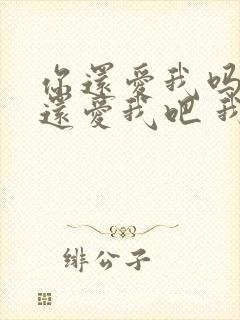 你還愛我吗
還愛我吧 我
緋公子